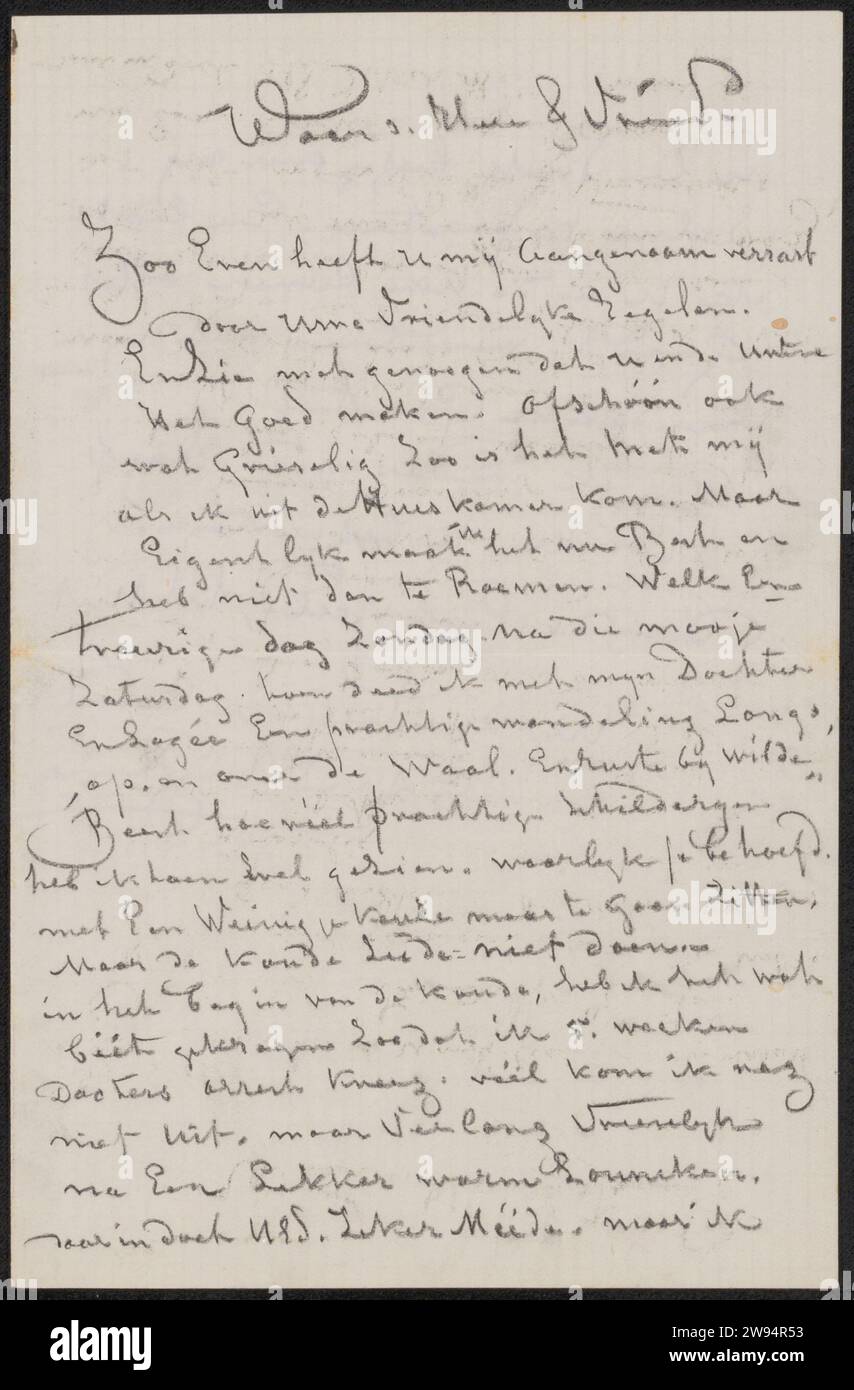 Waar s. Heer & Vriend
Zoo Even heeft u mij Aangenaam verrast
door uwe Vriendelyke Regelen.
En Zie met genoegen dat u en de
Het Goed maken. Ofschóón ook
wat Grieselig Zoo is het Met mij
als ik uit de Huiskamer kom. Maar
Eigentlyk maak ik het nu Best en
heb niet dan te Roemen. Welk Een
treurige dag Zondag na die mooje
Zaturdag. toen deed ik met myn Dochter
En Een prachtige wandeling Langs,
op. en over de Waal. En ruste by Wilde
Beest hoe véél prachtige Schilderyen
heb ik toen wel gezien. waarlyk je behoefd.
met Een Weinig maar te Gaan Zitten.
Maar de Koude Liede = niet doen.
in het Begin van de Koude, heb ik het wat
béét gekregen Zoo dat ik 5. weeken
Docters arrest Kreeg. véél kom ik nog
niet uit. maar Verlang Vrieselyk
na Een Lekker warm Zonneken.
daar in doet UEd. Zeker Mééde. maar ik
alamy
Image ID: 2W94R53
www.alamy.com